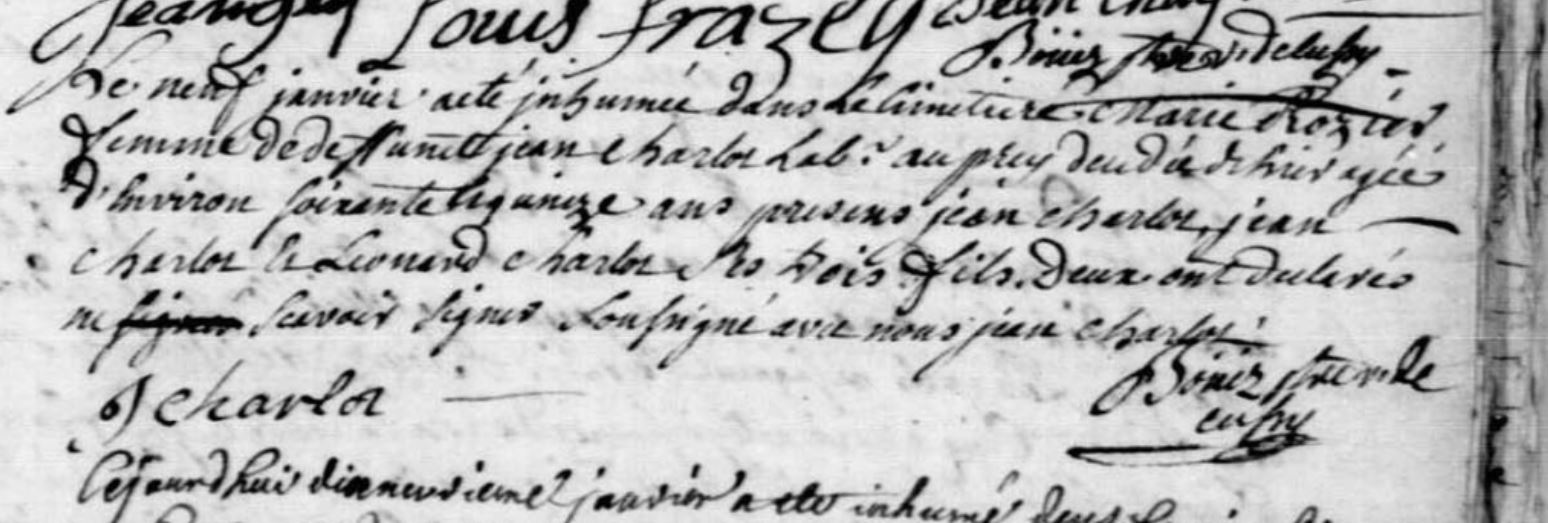 Louis frazey
Böüez ptre v. de cussy
Le neuf janvier a eté inhumée dans le cimetiere Marie Rozier
femme de deffunct jean charlot Lab.r au prey decedée d'hier agée
d'Environ soixante et quinze ans presens jean charlot, jean
charlot et Leonard charlot ses trois fils. Deux ont declarés
ne signer scavoir signer soussigné avec nous jean charlot
J charlot
Böüez ptre v. de
cussy
Cejourdhui dixneuvieme janvier a eté inhumé dans